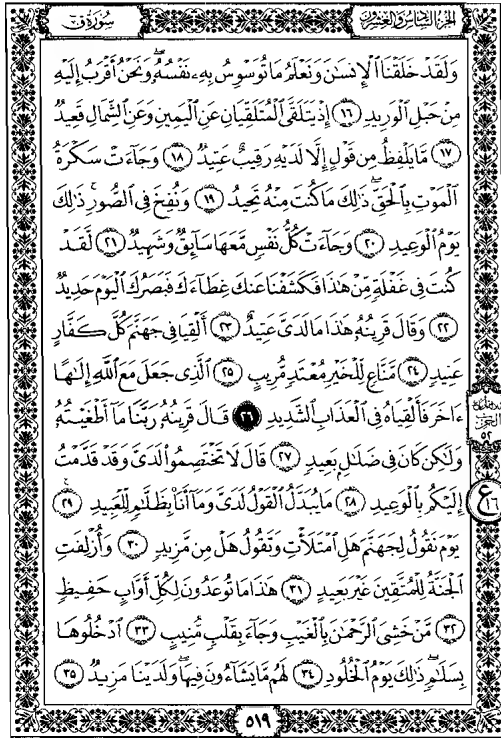 الجزء السادس والعشرون
سُورَةُ قٓ
وَلَقَدْ خَلَقْنَا ٱلْإِنسَٰنَ وَنَعْلَمُ مَا تُوَسْوِسُ بِهِۦ نَفْسُهُۥ وَنَحْنُ أَقْرَبُ إِلَيْهِ
مِنْ حَبْلِ ٱلْوَرِيدِ ١٦ إِذْ يَتَلَقَّى ٱلْمُتَلَقِّيَانِ عَنِ ٱلْيَمِينِ وَعَنِ ٱلشِّمَالِ قَعِيدٌ
١٧ مَّا يَلْفِظُ مِن قَوْلٍ إِلَّا لَدَيْهِ رَقِيبٌ عَتِيدٌ ١٨ وَجَآءَتْ سَكْرَةُ
ٱلْمَوْتِ بِٱلْحَقِّ ۖ ذَٰلِكَ مَا كُنتَ مِنْهُ تَحِيدُ ١٩ وَنُفِخَ فِى ٱلصُّورِ ۚ ذَٰلِكَ
يَوْمُ ٱلْوَعِيدِ ٢٠ وَجَآءَتْ كُلُّ نَفْسٍ مَّعَهَا سَآئِقٌ وَشَهِيدٌ ٢١ لَّقَدْ
كُنتَ فِى غَفْلَةٍ مِّنْ هَٰذَا فَكَشَفْنَا عَنكَ غِطَآءَكَ فَبَصَرُكَ ٱلْيَوْمَ حَدِيدٌ
٢٢ وَقَالَ قَرِينُهُۥ هَٰذَا مَا لَدَىَّ عَتِيدٌ ٢٣ أَلْقِيَا فِى جَهَنَّمَ كُلَّ كَفَّارٍ
عَنِيدٍ ٢٤ مَّنَّاعٍ لِّلْخَيْرِ مُعْتَدٍ مُّرِيبٍ ٢٥ ٱلَّذِى جَعَلَ مَعَ ٱللَّهِ إِلَٰهًا
ءَاخَرَ فَأَلْقِيَاهُ فِى ٱلْعَذَابِ ٱلشَّدِيدِ ٢٦ قَالَ قَرِينُهُۥ رَبَّنَا مَآ أَطْغَيْتُهُۥ
وَلَٰكِن كَانَ فِى ضَلَٰلٍۭ بَعِيدٍ ٢٧ قَالَ لَا تَخْتَصِمُوا۟ لَدَىَّ وَقَدْ قَدَّمْتُ
إِلَيْكُم بِٱلْوَعِيدِ ٢٨ مَا يُبَدَّلُ ٱلْقَوْلُ لَدَىَّ وَمَآ أَنَا۠ بِظَلَّٰمٍ لِّلْعَبِيدِ ٢٩
يَوْمَ نَقُولُ لِجَهَنَّمَ هَلِ ٱمْتَلَأْتِ وَتَقُولُ هَلْ مِن مَّزِيدٍ ٣٠ وَأُزْلِفَتِ
ٱلْجَنَّةُ لِلْمُتَّقِينَ غَيْرَ بَعِيدٍ ٣١ هَٰذَا مَا تُوعَدُونَ لِكُلِّ أَوَّابٍ حَفِيظٍ
٣٢ مَّنْ خَشِىَ ٱلرَّحْمَٰنَ بِٱلْغَيْبِ وَجَآءَ بِقَلْبٍ مُّنِيبٍ ٣٣ ٱدْخُلُوهَا
بِسَلَٰمٍ ۖ ذَٰلِكَ يَوْمُ ٱلْخُلُودِ ٣٤ لَهُم مَّا يَشَآءُونَ فِيهَا وَلَدَيْنَا مَزِيدٌ ٣٥
٥١٩